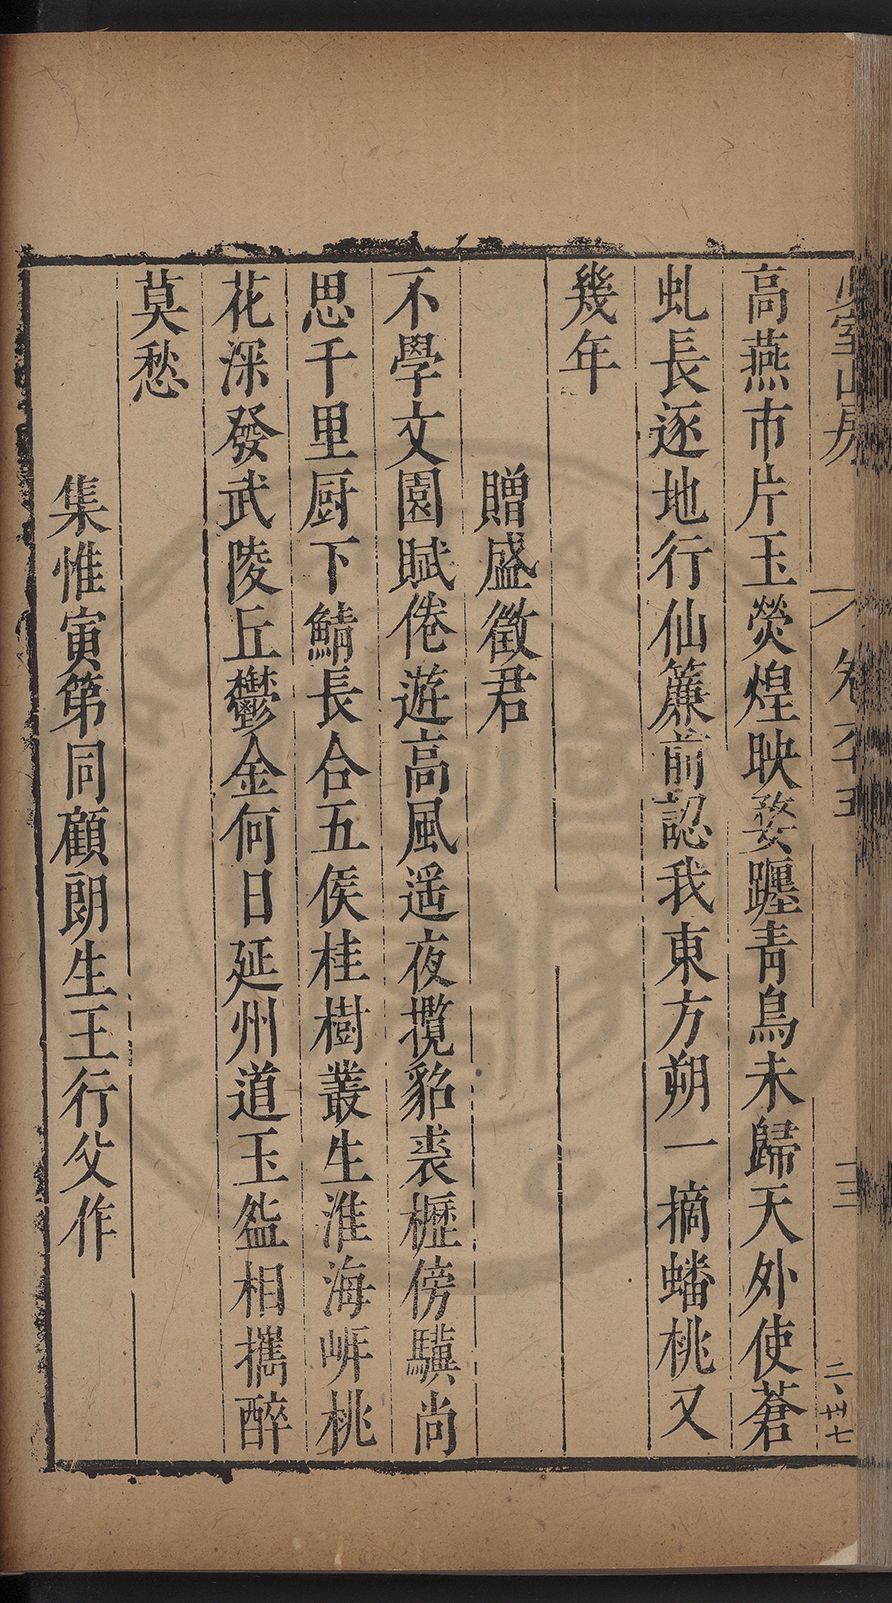 少室山房
卷六十五
十三
二、卅七
高燕市片玉熒煌映婺躔青鳥未歸天外使蒼
虬長逐地行仙簾前認我東方朔一摘蟠桃又
幾年
贈盛徵君
不學文園賦倦遊高風遥夜攬貂裘櫪傍驥尚
思千里厨下鯖長合五侯桂樹叢生淮海岍桃
花深發武陵丘鬱金何日延州道玉㿿相攜醉
莫愁
集惟寅第同顧朗生王行父作